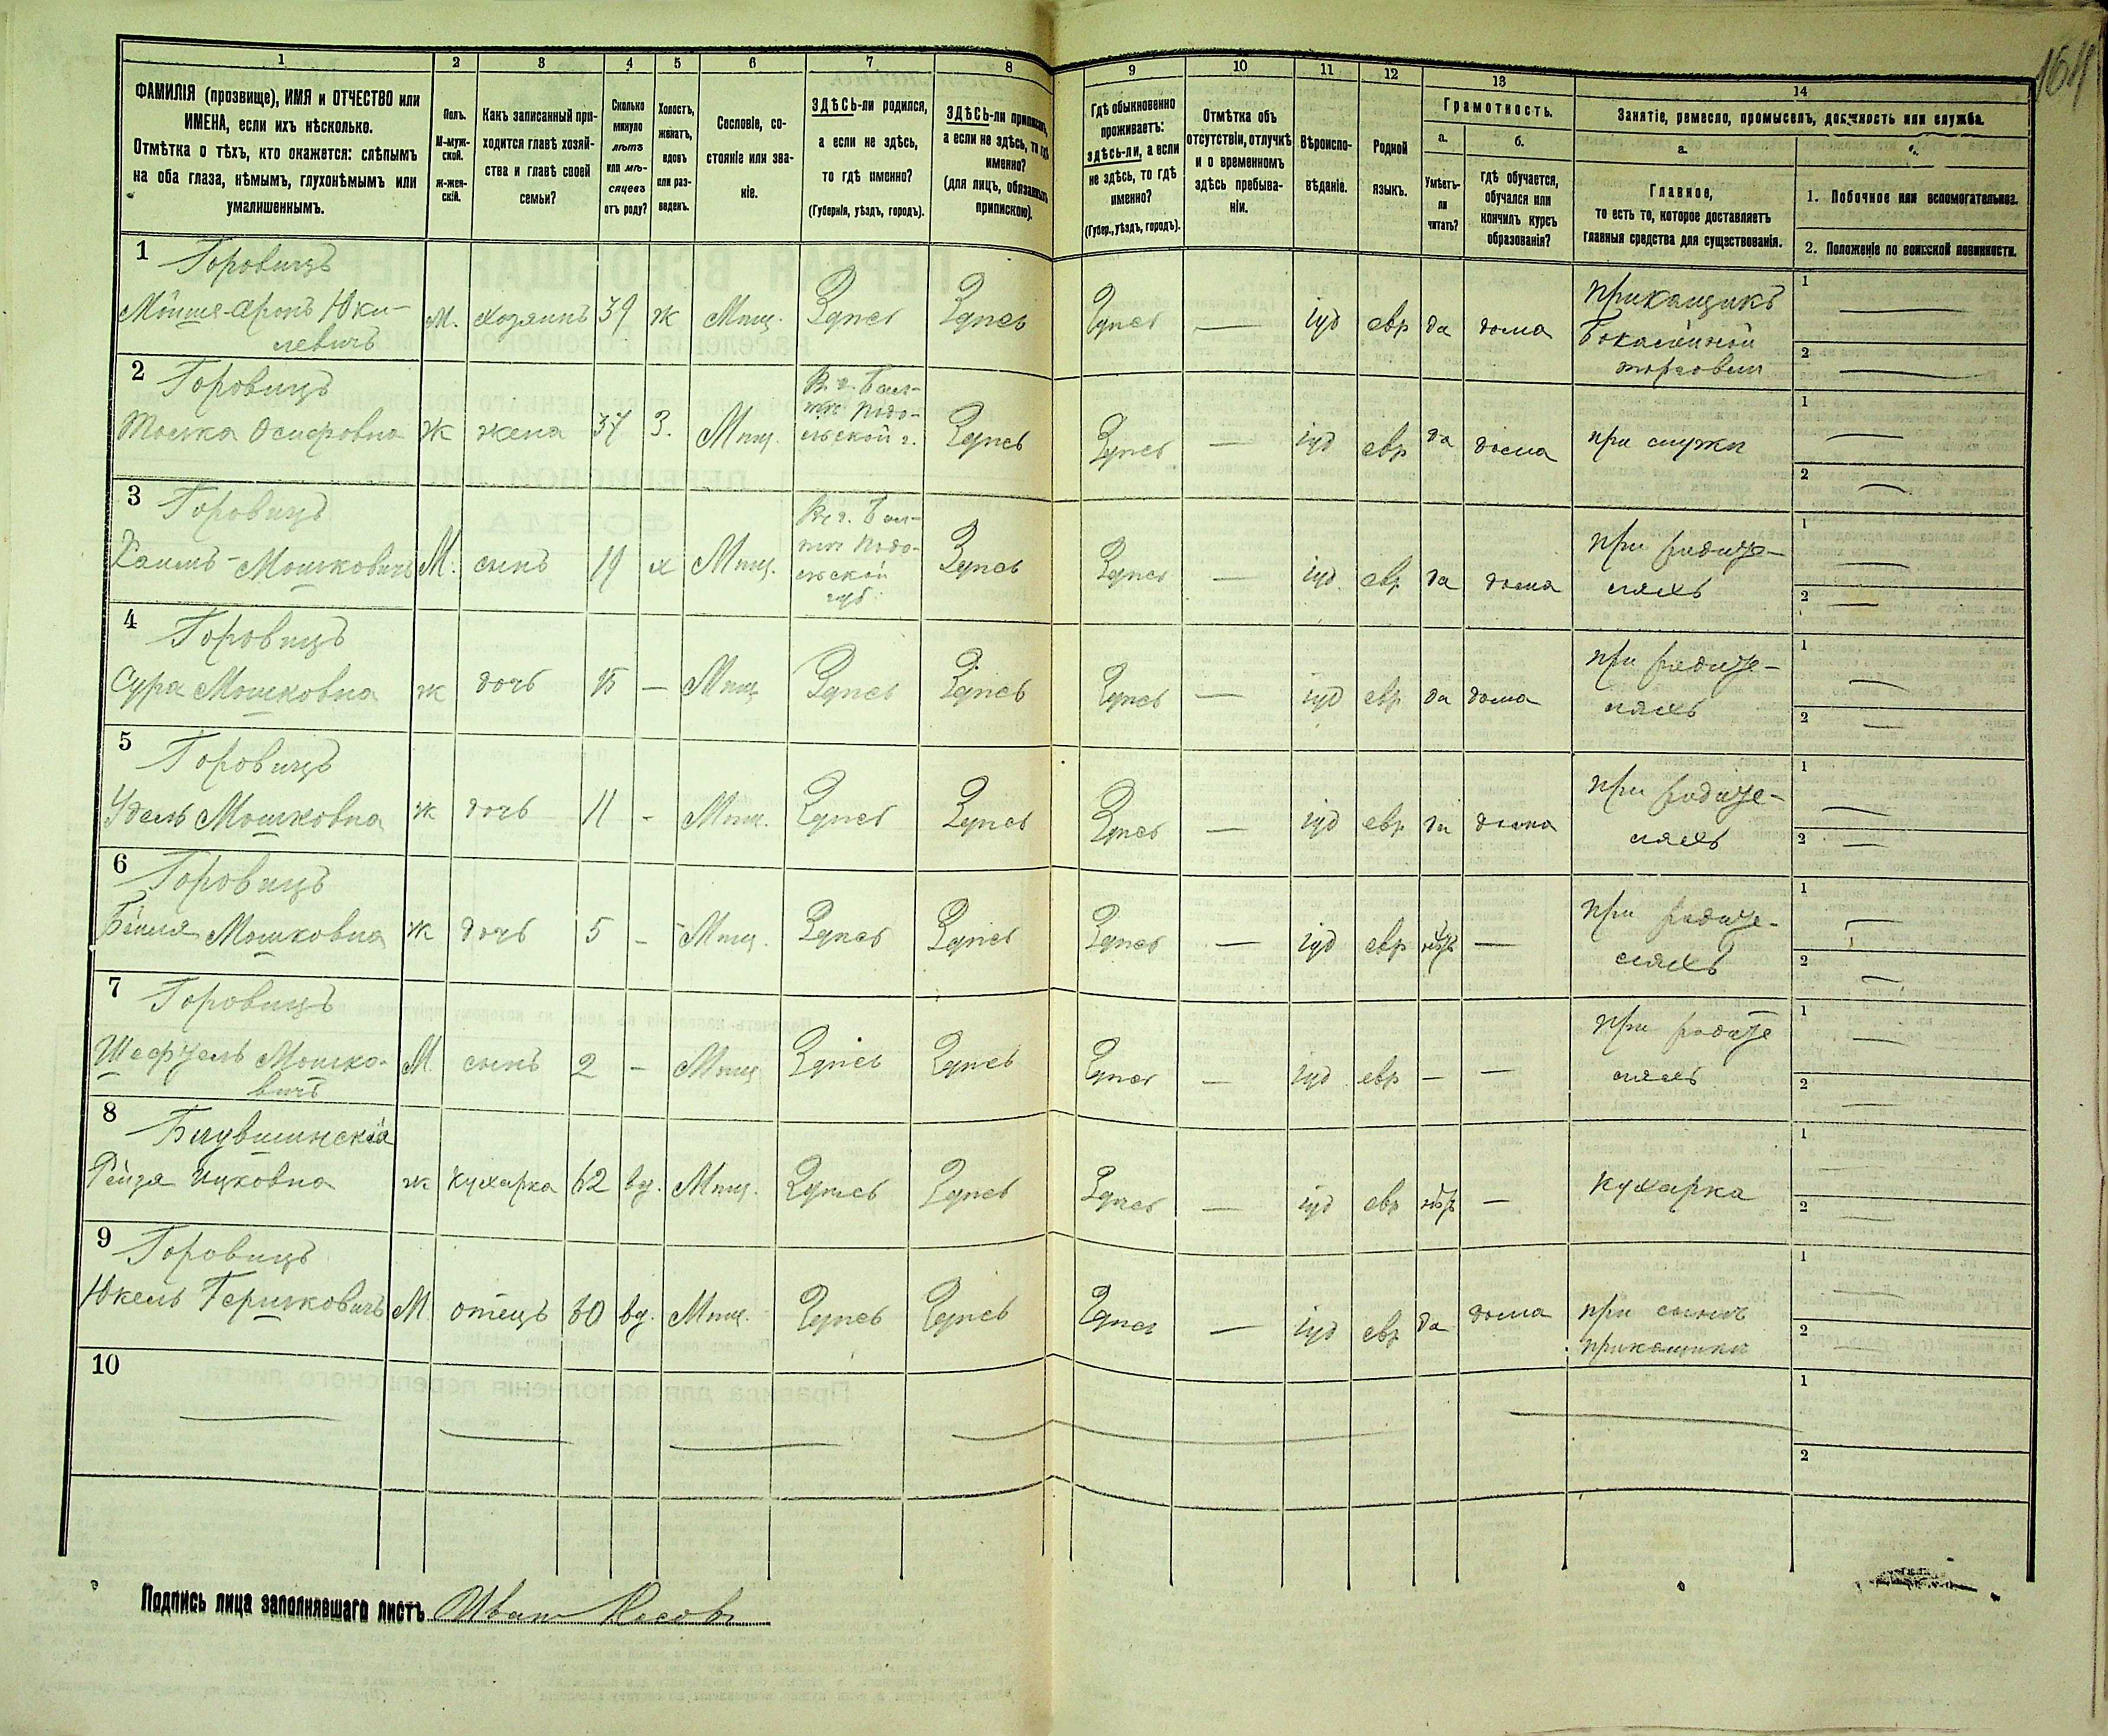 1 2 3 4 5 6 7 8 9 10 11 12 13 14
164
ФАМИЛІЯ (прозвище), ИМЯ и ОТЧЕСТВО или
ИМЕНА, если ихъ нѣсколько.
Отмѣтка о тѣхъ, кто окажется: слѣпымъ
на оба глаза, нѣмымъ, глухонѣмымъ или
умалишеннымъ.
Полъ.
М-муж-
ской.
ж-жен-
скій.
Какъ записанный при-
ходится главѣ хозяй-
ства и главѣ своей
семьи?
Сколько
минуло
лѣтъ
или мѣ-
сяцевъ
отъ роду?
Холостъ,
женатъ,
вдовъ
или раз-
веденъ.
Сословіе, со-
стояніе или зва-
ніе.
ЗДѢСЬ-ли родился,
а если не здѣсь,
то гдѣ именно?
(Губернія, уѣздъ, городъ).
ЗДѢСЬ-ли приписанъ,
а если не здѣсь, то гдѣ
именно?
(для лицъ, обязанныхъ
припискою).
Гдѣ обыкновенно
проживаетъ:
здѣсь-ли, а если
не здѣсь, то гдѣ
именно?
(Губер., уѣздъ, городъ).
Отмѣтка объ
отсутствіи, отлучкѣ
и о временномъ
здѣсь пребыва-
ніи.
Вѣроиспо-
вѣданіе.
Родной
языкъ.
Грамотность.
а.
Умѣетъ-
ли
читать?
б.
гдѣ обучается,
обучался или
кончилъ курсъ
образованія?
Занятіе, ремесло, промыселъ, должность или служба.
а.
Главное,
то есть то, которое доставляетъ
главныя средства для существованія.
1. Побочное или вспомогательное.
2. Положеніе по воинской повинности.
1 Горовицъ
Мошя-Аронъ Юки-
левичъ
М. хозяинъ 39 ж Мѣщ. Здѣсь Здѣсь Здѣсь — іуд евр да дома
прикащикъ
торговли
2 Горовицъ
Осиповна Ж жена 37 З. Мѣщ.
В г. Бал-
тѣ Подо-
льской г.
Здѣсь Здѣсь — іуд евр да дома при мужѣ
3 Горовицъ
Хаимъ-Мошковичъ М. сынъ 19 х Мѣщ.
В г. Бал-
тѣ Подо-
льской
губ.
Здѣсь Здѣсь — іуд евр да дома
при родите-
ляхъ
4 Горовицъ
Сура Мошковна ж дочь 15 — Мѣщ Здѣсь Здѣсь Здѣсь — іуд евр да дома
при родите-
ляхъ
5 Горовицъ
Удель Мошковна ж дочь 11 - Мѣщ. Здѣсь Здѣсь Здѣсь — іуд евр да дома
при родите-
ляхъ
6 Горовицъ
Бейля Мошковна ж дочь 5 - Мѣщ. Здѣсь Здѣсь Здѣсь — іуд евр нѣтъ —
при родите-
ляхъ
7 Горовицъ
Шефтель Мошко-
вичъ
М. сынъ 2 - Мѣщ Здѣсь Здѣсь Здѣсь — іуд евр — —
при родите
ляхъ
8
Рейзя Ицковна ж кухарка 62 вд. Мѣщ. Здѣсь Здѣсь Здѣсь — іуд евр нѣтъ — Кухарка
9 Горовицъ
Юкель Гершковичъ М. отецъ 60 вд. Мѣщ. Здѣсь Здѣсь Здѣсь — іуд евр да дома при сынѣ
прикащикѣ
10
Подпись лица заполнявшаго листъ Иванъ